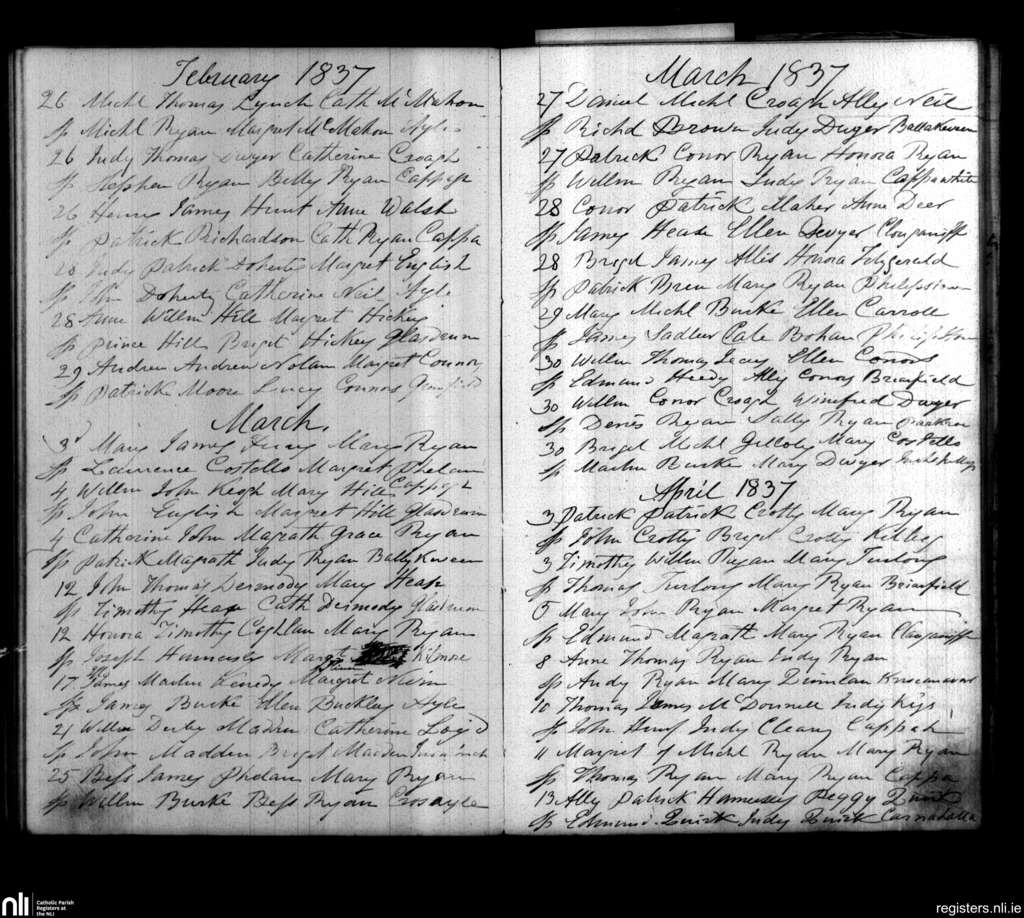 February 1837
26 Michl Thomas Lynch Cath McMahon
Sp Michl Ryan Margret McMahon Ayle
26 Judy Thomas Dwyer Catherine Croagh
Sp Stephen Ryan Betty Ryan Cappagh
26 Henry James Hunt Anne Walsh
Sp Patrick Richardson Cath Ryan Cappa
28 Judy Patrick Doherty Margret English
Sp John Doherty Catherine Neil Ayle
28 Anne Willm Hill Margret Hickey
Sp Prince Hill Bridget Hickey Glasdrum
29 Andrew Andrew Nolan Margret Connors
Sp Patrick Moore Lucey Connors
March.
3 Mary James Mary Ryan
Sp Laurence Costello Margret Phelan
4 Willm John Keogh Mary Hill Cappagh
Sp John English Margret Hill Glasdrum
4 Catherine John Magrath Grace Ryan
Sp Patrick Magrath Judy Ryan Ballykiveen
12 John Thomas Dermody Mary Heap
Sp Timothy Heap Cath Dermody Glasdrum
12 Honora Timothy Coghlan Mary Ryan
Sp Joseph Hunnesly Margt Kilmore
17 James Martin Kenedy Margret
Sp James Burke Ellen Buckley Ayle
21 Willm Derby Madden Catherine Loyd
Sp John Madden Bridget Madden
25 Bess James Phelan Mary Ryan
Sp Willm Burke Bess Ryan Crosayle
March 1837
27 Daniel Michl Croagh Ally Neil
Sp Richd Brown Judy Dwyer Ballakeveen
27 Patrick Conor Ryan Honora Ryan
Sp Willm Ryan Judy Ryan Cappawhite
28 Conor Patrick Maher Anne Deer
Sp James Hease Ellen Dwyer Clonganiff
28 Bridget James Allis Honora Fitzgerald
Sp Patrick Bren Mary Ryan Philipstown
29 Mary Michl Burke Ellen Carroll
Sp James Sadler Cate Bohan Philipstown
30 Willm Thomas Lacey Ellen Conors
Sp Edmund Heedy Ally Conors Brianfield
30 Willm Conor Croagh Winefred Dwyer
Sp Denis Ryan Sally Ryan
30 Bridget Michl Gilloly Mary Costello
Sp Martin Burke Mary Dwyer
April 1837
3 Patrick Patrick Crotty Mary Ryan
Sp John Crotty Bridget Crotty Killeg
3 Timothy Willm Ryan Mary Furlong
Sp Thomas Furlong Mary Ryan Brianfield
5 Mary John Ryan Margret Ryan
Sp Edmund Magrath Mary Ryan Clonganiff
8 Anne Thomas Ryan Judy Ryan
Sp Andy Ryan Mary Quinlan
10 Thomas James McDonnell Judy
Sp John Hunt Judy Cleary Cappagh
11 Margret of Michl Ryan Mary Ryan
Sp Thomas Ryan Mary Ryan Cappa
13 Ally Patrick Hennessy Peggy Quirk
Sp Edmund Quirk Judy Quirk Carnahalla
nli Catholic Parish
Registers at
the NLI
registers.nli.ie